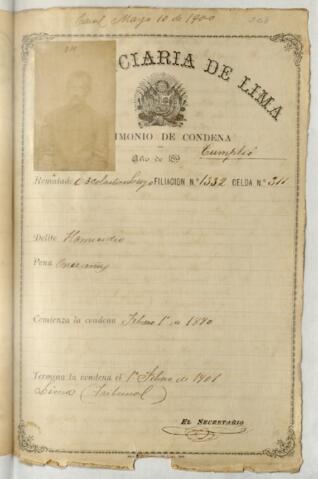 Mayo 10 de 1900
CIARIA DE LIMA
IMONIO DE CONDENA
Año de 189
Cumplió
Rematado FILIACION N.º 1332 CELDA N.º 311
Delito Homicidio
Pena Once años
Comienza la condena Febrero 1º de 1890
Termina la condena el 1º Febrero de 1901
Lima (Tribunal)
EL SECRETARIO